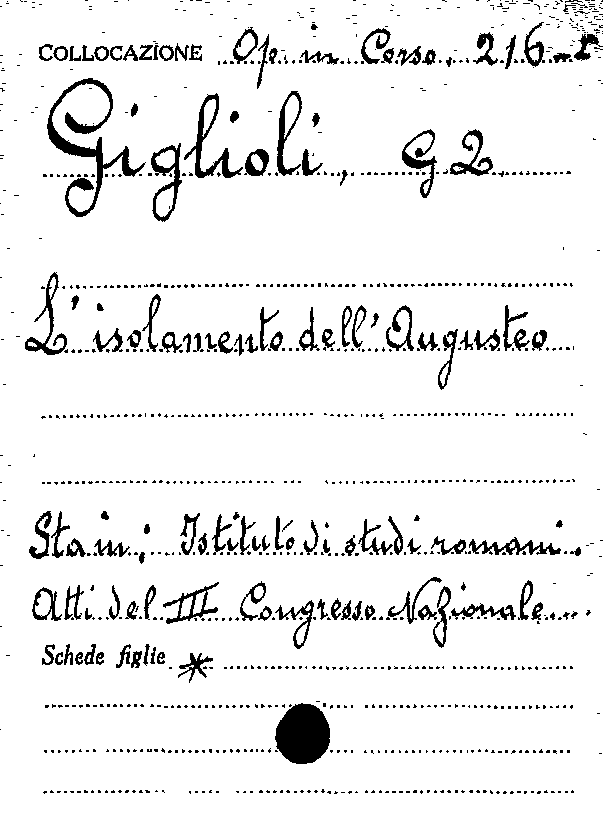 COLLOCAZIONE Op. in Corso. 216-5
Giglioli, G2
L'isolamento dell'Augusteo
Sta in: Istituto di studi romani.
Atti del III Congresso Nazionale...
Schede figlie *